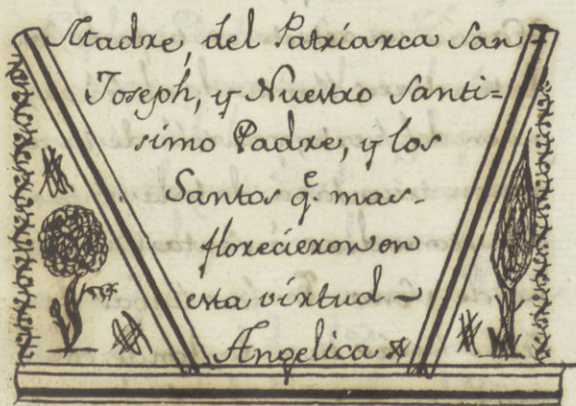 Madre, del Patriarca San
Joseph, y Nuestro Santi=
simo Padre, y los
Santos q.e mas
florecieron en
esta virtud
Angelica